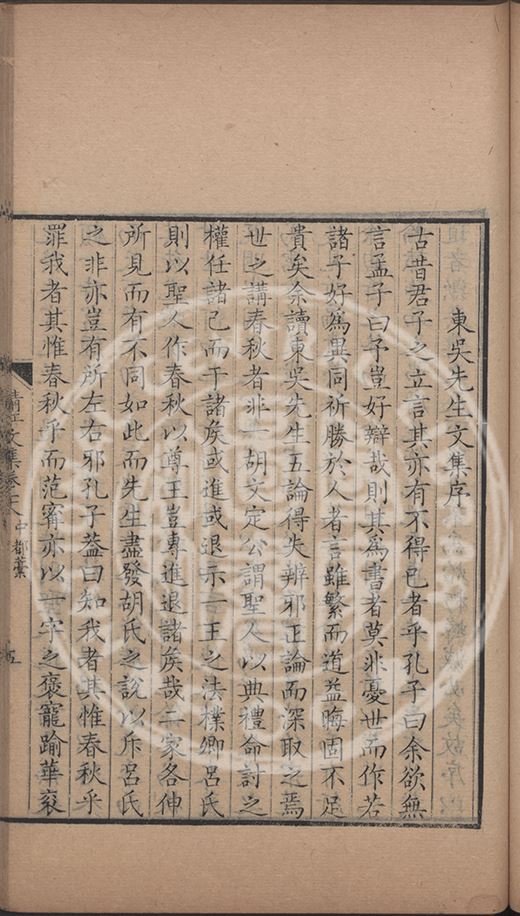 東吳先生文集序
古昔君子之立言其亦有不得已者乎孔子曰余欲無
言孟子曰予豈好辯哉則其為書者莫非憂世而作若
諸子好為異同祈勝於人者言雖繁而道益晦固不足
貴矣余讀東吳先生五論得失辨邪正論而深取之焉
世之講春秋者非一胡文定公謂聖人以典禮命討之
權任諸己而于諸矦或進或退示一王之法樸卿呂氏
則以聖人作春秋以尊王豈專進退諸矦哉二家各伸
所見而有不同如此而先生盡發胡氏之說以斥呂氏
之非亦豈有所左右邪孔子葢曰知我者其惟春秋乎
罪我者其惟春秋乎而范甯亦以一字之褒寵踰華袞
清江文集卷 中都藁